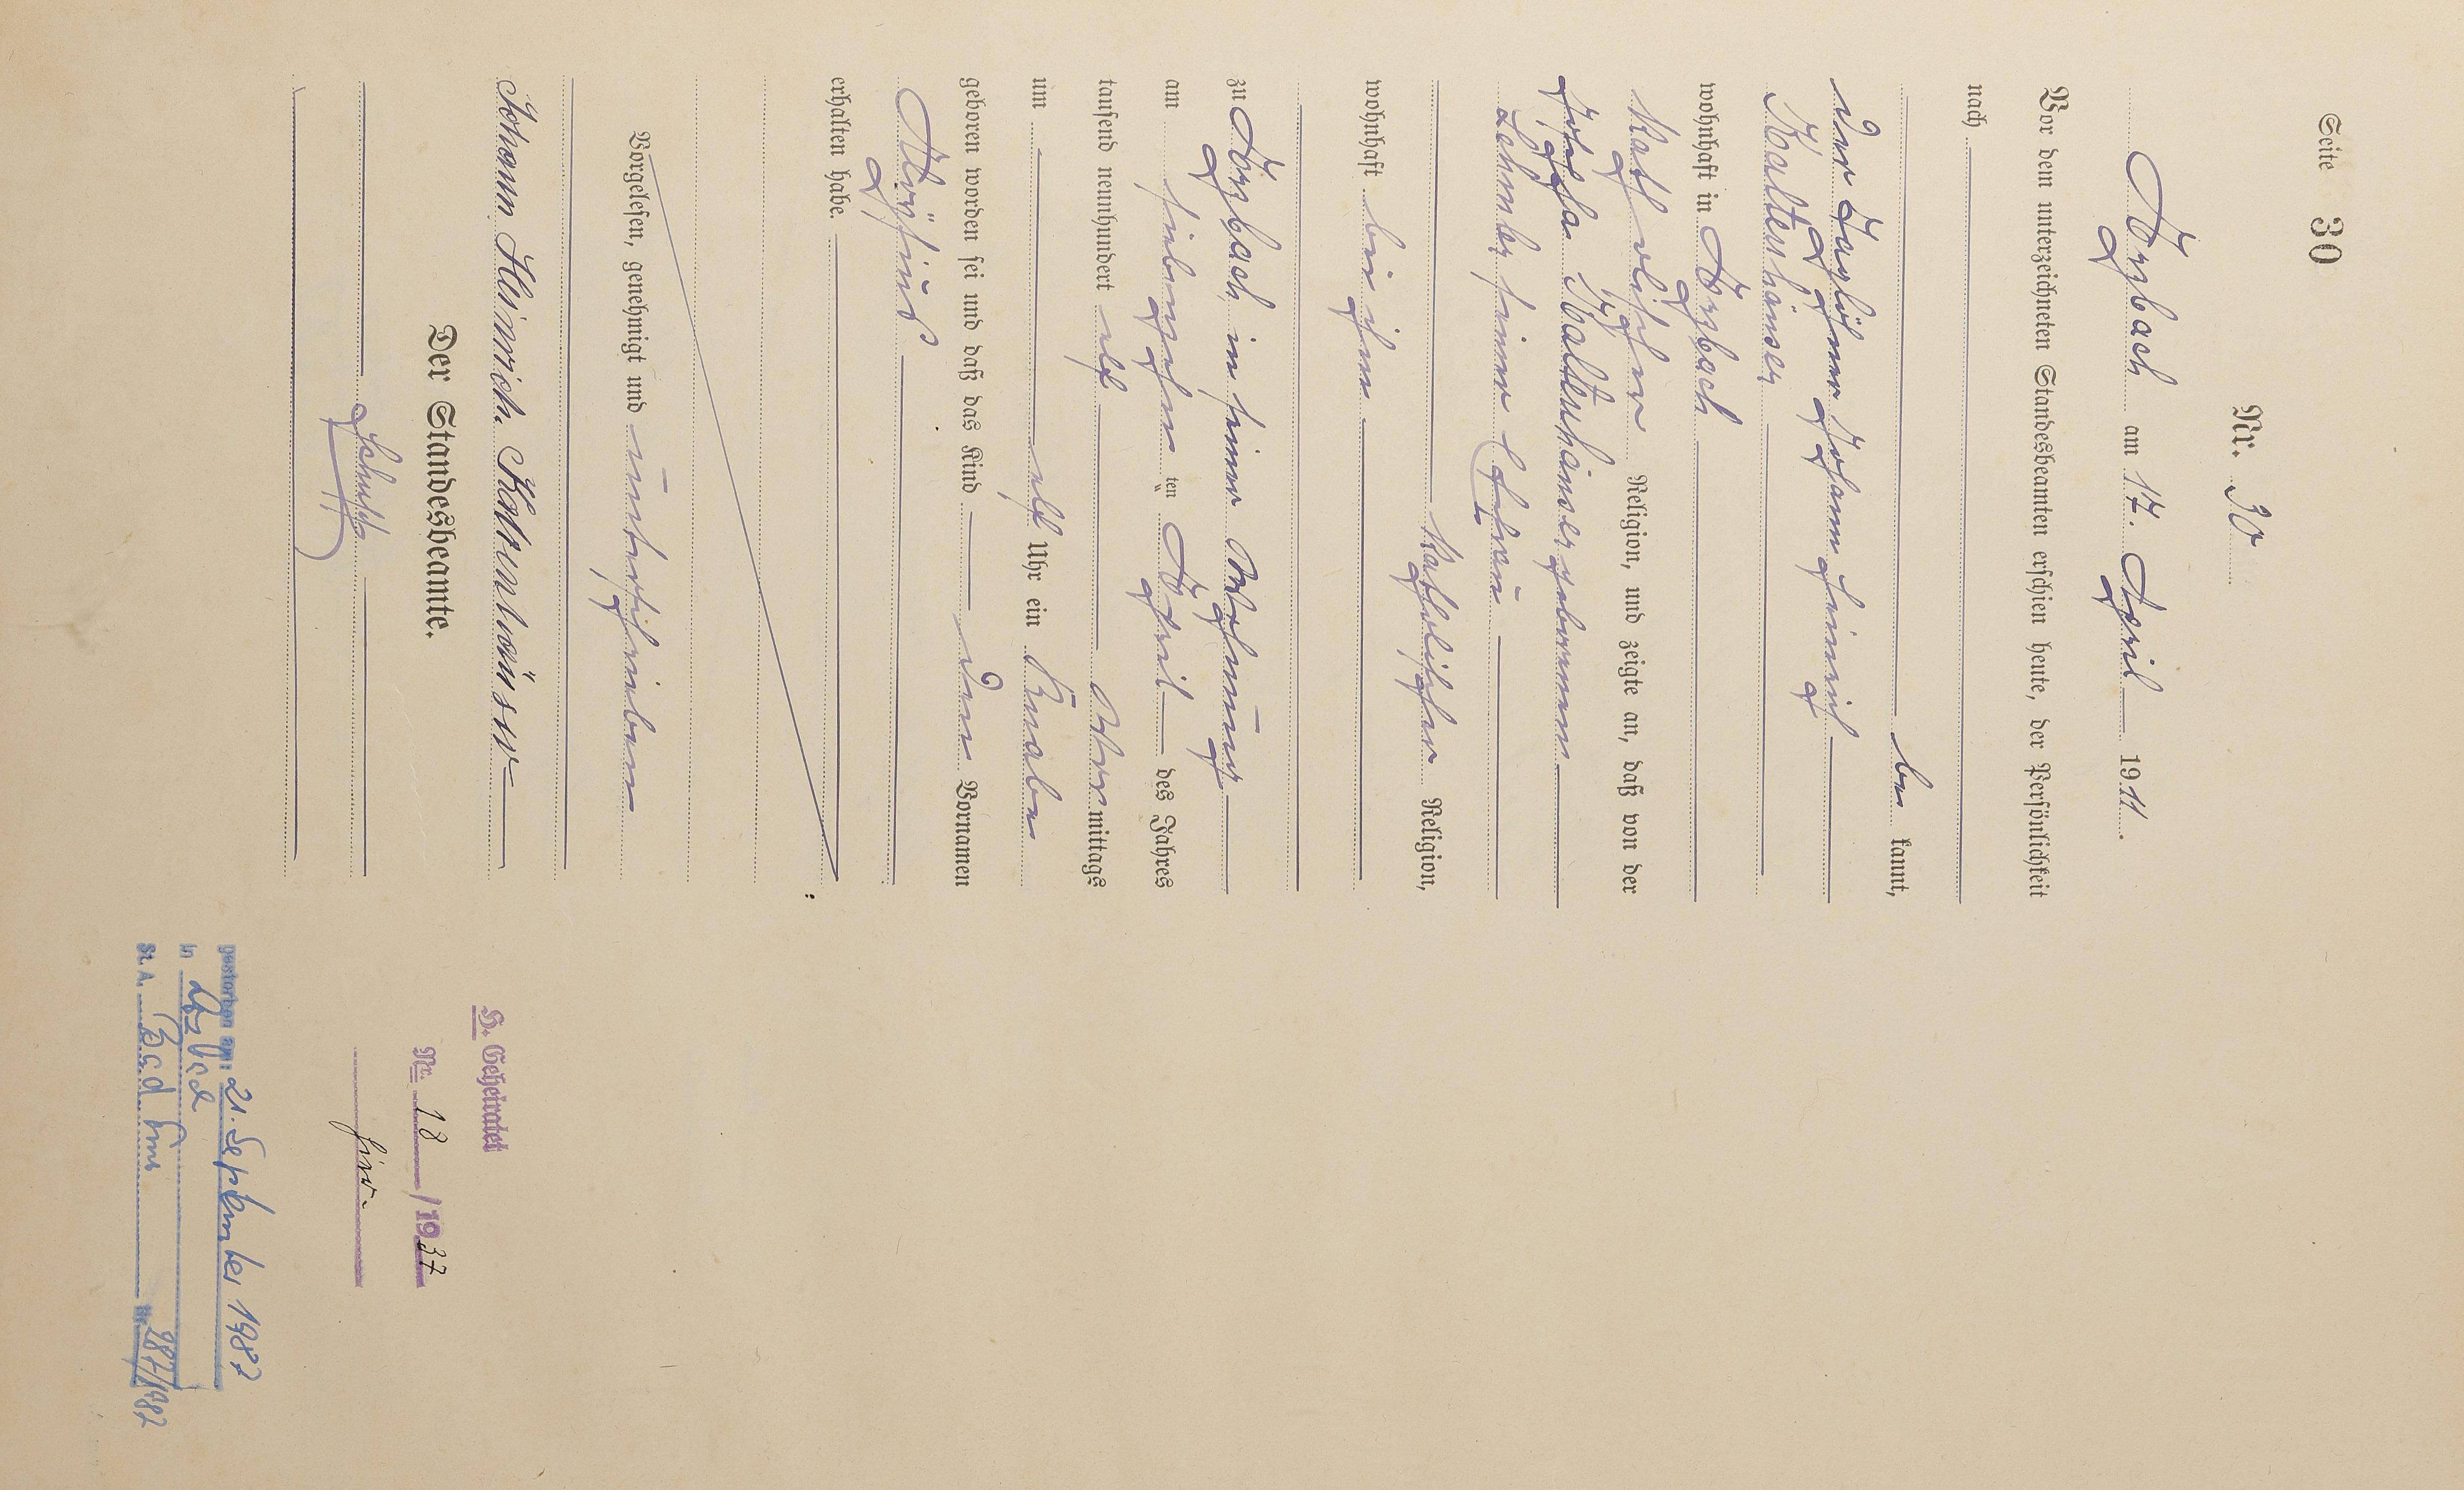 Seite 30
Nr. 30
Arzbach am 17. April 1911.
Vor dem unterzeichneten Standesbeamten erschien heute, der Persönlichkeit
nach
be kannt,
der Taglöhner Johann Heinrich
Kaltenhäuser
wohnhaft in Arzbach
katholischer Religion, und zeigte an, daß von der
Josefa Kaltenhäuser geborenen
Lehmler seiner Ehefrau
katholischer Religion,
wohnhaft bei ihm
zu Arzbach in seiner Wohnung
am siebenzehn ten April des Jahres
tausend neunhundert elf Vormittags
um elf Uhr ein Knabe
geboren worden sei und daß das Kind den Vornamen
Aloysius
erhalten habe.
Vorgelesen, genehmigt und unterschrieben
Johann Heinrich Kaltenhäuser
Der Standesbeamte.
H. Geheiratet
Nr. 18 / 1937
hier.
gestorben am: 21. September 1982
in Arzbach
St. A. Bad Ems Nr. 287/1982